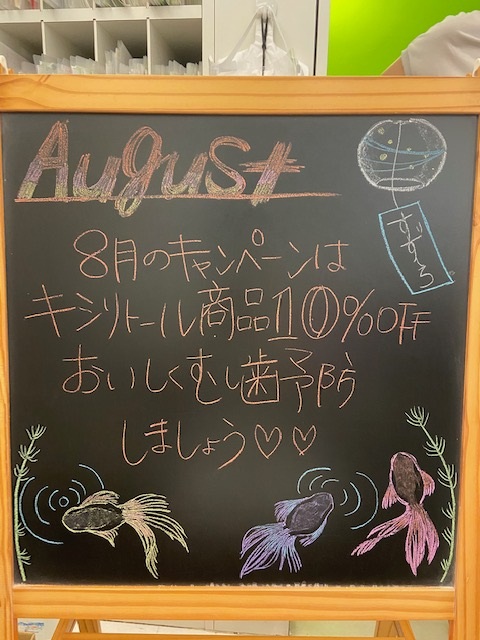 August
すずーろ
8月のキャンペーンは
キシリトール商品10%OFF
おいしくむし歯予防
しましょう♡♡